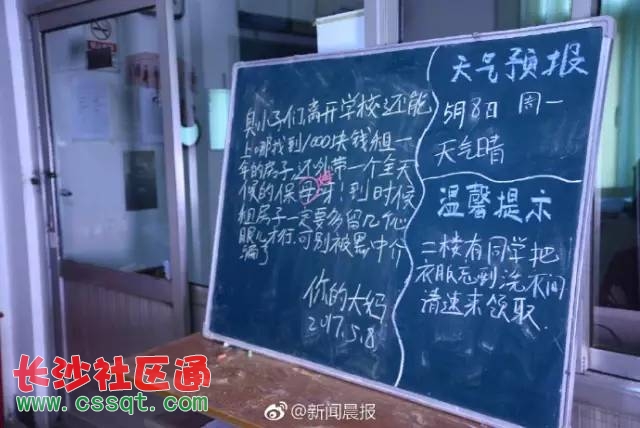 臭小子们,离开学校还能
上哪找到1000块钱租一
年的房子,还外带一个全天
候的保母呀!到时候
租房子一定要多留几个心
眼儿才行,可别被黑中介
骗了
你的大妈
2017.5.8
天气预报
5月8日 周一
天气晴
温馨提示
二楼有同学把
衣服忘到洗衣间
请速来领取.
长沙社区通
www.cssqt.com
@新闻晨报